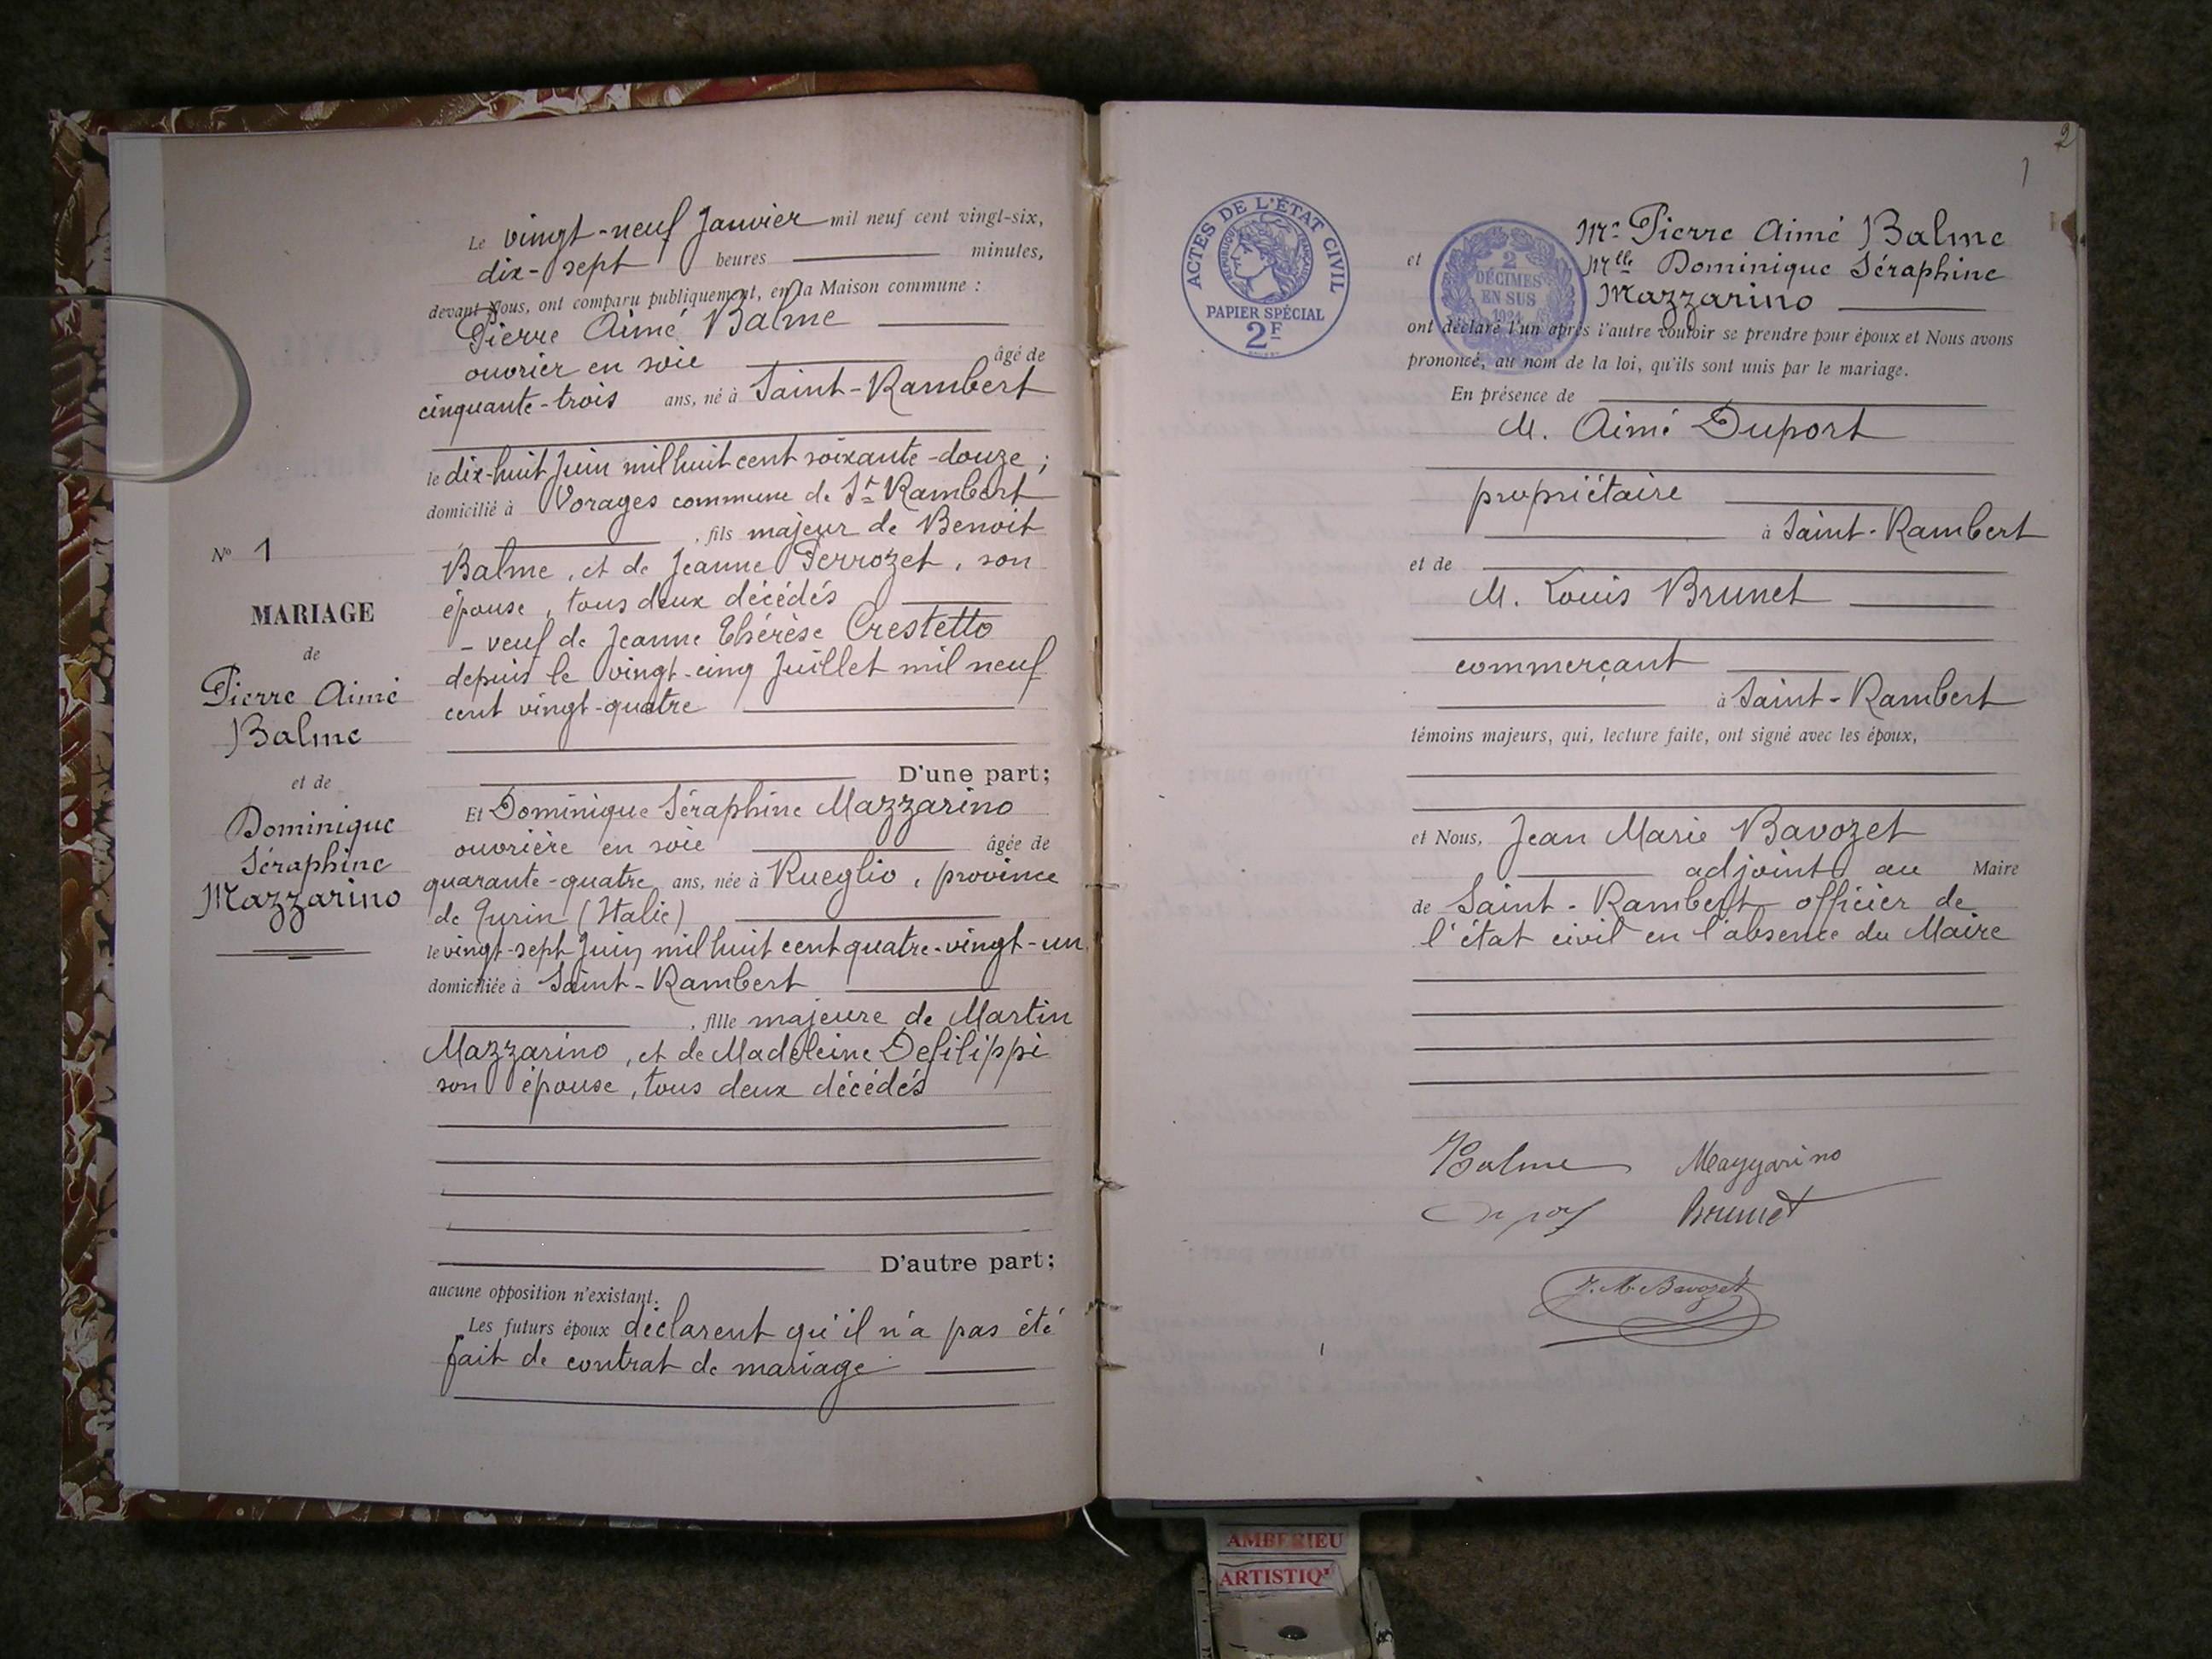 N° 1
MARIAGE
de
Pierre Aimé
Balme
et de
Dominique
Séraphine
Mazzarino
Le vingt-neuf Janvier mil neuf cent vingt-six,
dix-sept heures minutes,
devant Nous, ont comparu publiquement, en la Maison commune :
Pierre Aimé Balme
ouvrier en soie âgé de
cinquante-trois ans, né à Saint-Rambert
le dix-huit Juin mil huit cent soixante-douze ;
domicilié à Vorages commune de St Rambert
, fils majeur de Benoit
Balme, et de Jeanne Perrozet, son
épouse, tous deux décédés
- veuf de Jeanne Thérèse Crestetto
depuis le vingt-cinq Juillet mil neuf
cent vingt-quatre
D'une part;
Et Dominique Séraphine Mazzarino
ouvrière en soie âgée de
quarante-quatre ans, née à Rueglio, province
de Turin (Italie)
le vingt-sept Juin mil huit cent quatre-vingt-un,
domiciliée à Saint-Rambert
, fille majeure de Martin
Mazzarino, et de Madeleine Defilippi
son épouse, tous deux décédés
D'autre part;
aucune opposition n'existant.
Les futurs époux déclarent qu'il n'a pas été
fait de contrat de mariage
2
1
ACTES DE L'ÉTAT CIVIL
RÉPUBLIQUE FRANÇAISE
PAPIER SPÉCIAL
2F
2
DÉCIMES
EN SUS
1924
Mr Pierre Aimé Balme
et Mlle Dominique Séraphine
Mazzarino
ont déclaré l'un après l'autre vouloir se prendre pour époux et Nous avons
prononcé, au nom de la loi, qu'ils sont unis par le mariage.
En présence de
M. Aimé Duport
propriétaire
à Saint-Rambert
et de
M. Louis Brunet
commerçant
à Saint-Rambert
témoins majeurs, qui, lecture faite, ont signé avec les époux,
et Nous, Jean Marie Bavozet
adjoint au Maire
de Saint-Rambert officier de
l'état civil en l'absence du Maire
Balme Mazzarino
Duport Brunet
J. M. Bavozet
AMBERIEU
ARTISTIQ